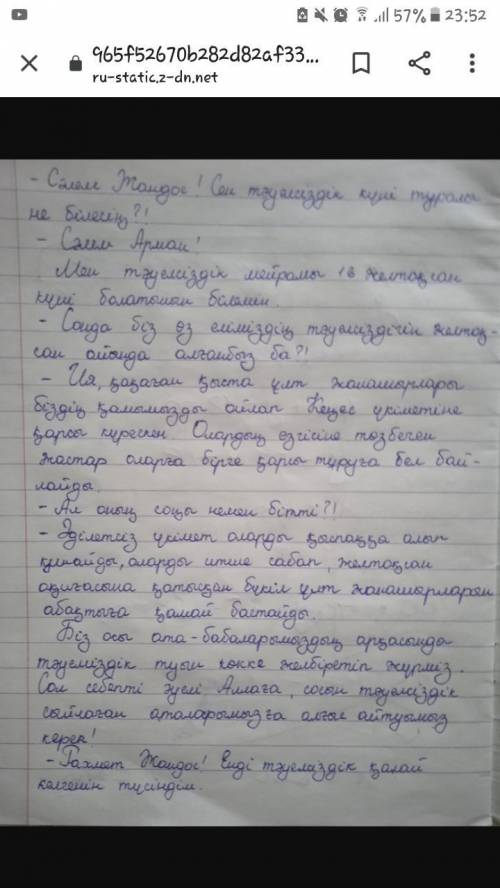 57% 23:52
965f52670b282d82af33...
ru-static.z-dn.net
- Сәлем Жандос! Сен тәуелсіздік күні туралы
не білесің?!
- Сәлем Арман!
Мен тәуелсіздік мейрамы 16 желтоқсан
күні болатынын білемін.
- Сонда біз өз еліміздің тәуелсіздігін желтоқ-
сан айында алғанбыз ба?!
- Ия, қақаған қыста ұлт жанашырлары
біздің қамымызды ойлап Кеңес үкіметіне
қарсы күрескен. Олардың езгісіне төзбеген
жастар оларға бірге қарсы тұруға бел бай-
лайды.
- Ал оның соңы немен бітті?!
- Әділетсіз үкімет оларды қыспаққа алып
қинайды, оларды итше сабап, желтоқсан
оқиғасына қатысқан бүкіл ұлт жанашырларын
абақтыға қамай бастайды.
Біз осы ата-бабаларымыздың арқасында
тәуелсіздік туын көкке желбіретіп жүрміз.
Сол себепті әуелі Аллаға, сосын тәуелсіздік
сыйлаған аталарымызға алғыс айтуымыз
керек!
- Рахмет Жандос! Енді тәуелсіздік қалай
келгенін түсіндім.